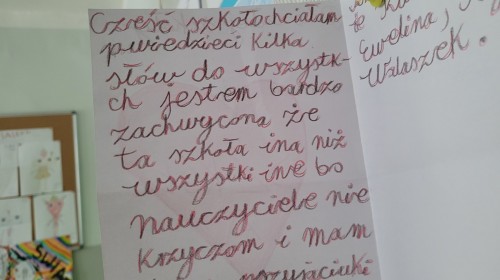 Cześć szkołochciałam
pwiedzieci kilka
słów do wszystk-
ch jestem bardzo
zachwycona że
ta szkoła ina niż
wszystki ine bo
nauczyciele nie
krzyczom i mam
Ewelina,
Walaszek.